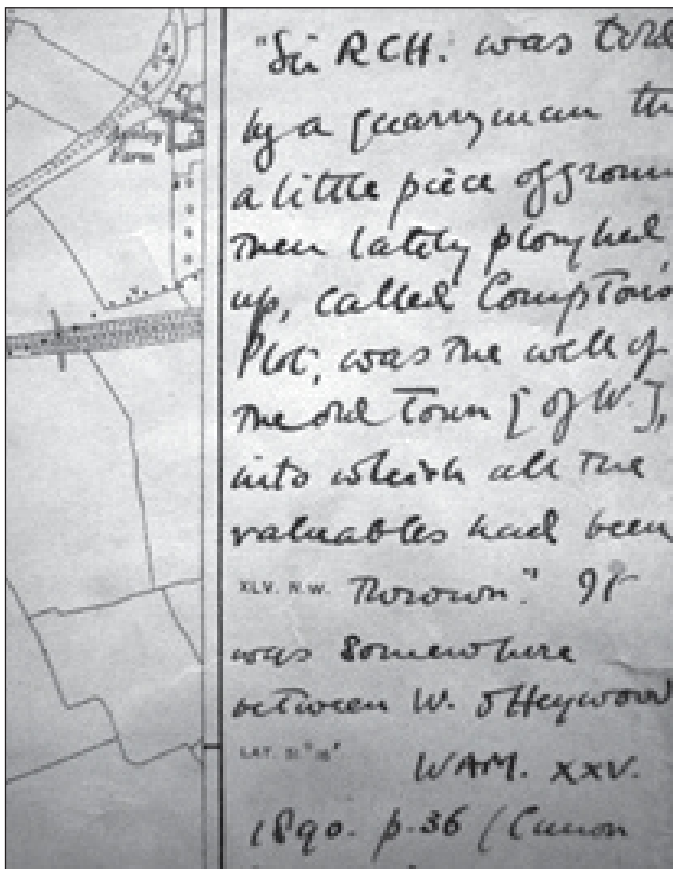 "Sir RCH. was told
by a quarryman th
a little piece of groun
then lately ploughed
up, called Compton's
Plot, was the well of
the old town [of W.],
into which all the
valuables had been
XLV. N.W. thrown." It
was somewhere
between W. & Heywood
LAT. 51° 16'
WAM. XXV.
1890. p. 36 (Canon
Farm